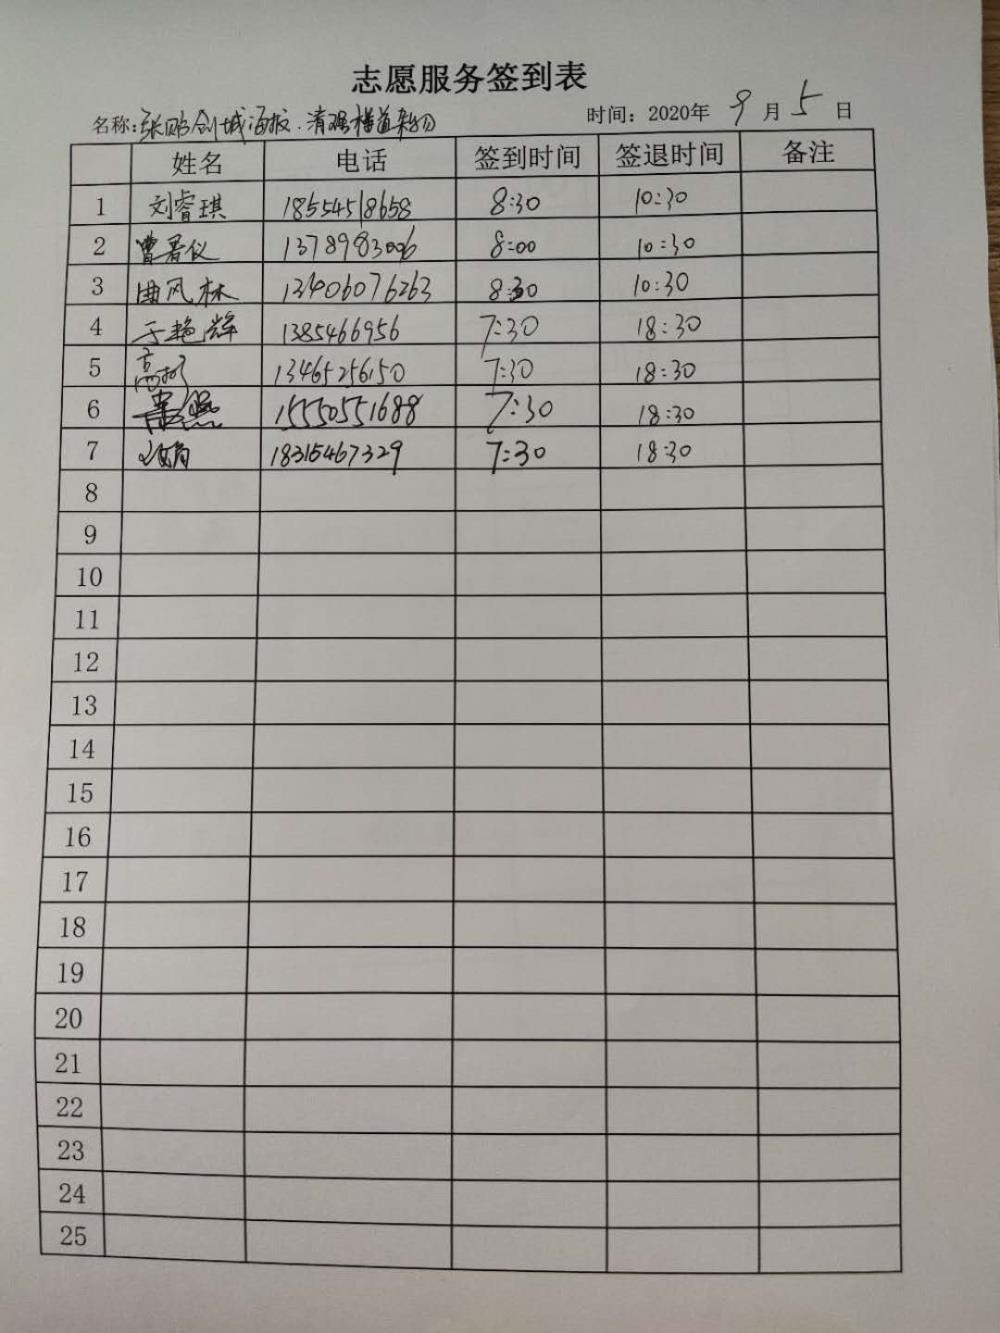 志愿服务签到表
名称:张贴创城海报.清理楼道杂物 时间：2020年 9 月 5 日
姓名 电话 签到时间 签退时间 备注
1 刘睿琪 18554518658 8:30 10:30
2 曹暑仪 13789983006 8:00 10:30
3 曲风林 13406076263 8:30 10:30
4 于艳辉 1385466956 7:30 18:30
5 高 13465256150 7:30 18:30
6 15550551688 7:30 18:30
7 18315467329 7:30 18:30
8
9
10
11
12
13
14
15
16
17
18
19
20
21
22
23
24
25